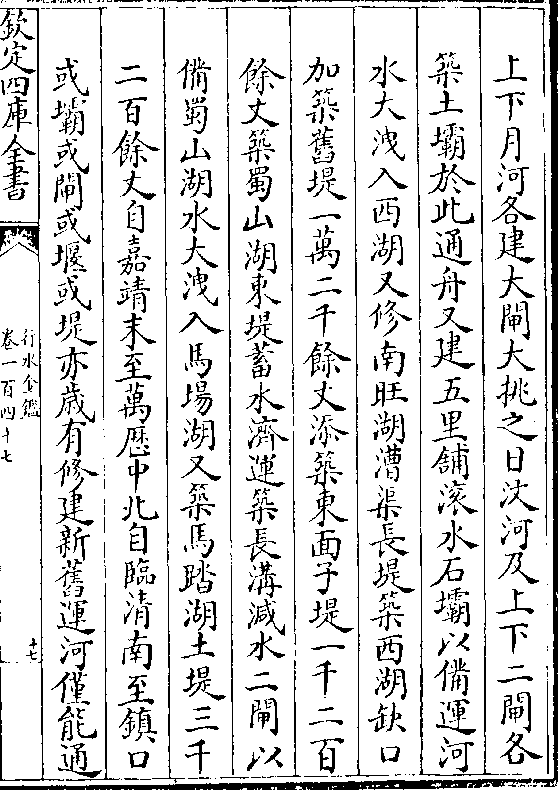 上下月河各建大閘大挑之日汶河及上下二閘各
築土壩於此通舟又建五里舗滚水石壩以備運河
水大洩入西湖又修南旺湖漕渠長堤築西湖缺口
加築舊堤一萬二千餘丈添築東面子堤一千二百
餘丈築蜀山湖東堤蓄水濟運築長溝減水二閘以
備蜀山湖水大洩入馬塲湖又築馬踏湖土堤三千
二百餘丈自嘉靖末至萬厯中北自臨清南至鎮口
或壩或閘或堰或堤亦歳有修建新舊運河僅能通
欽定四庫全書
行水金鑑
卷一百四十七
十七